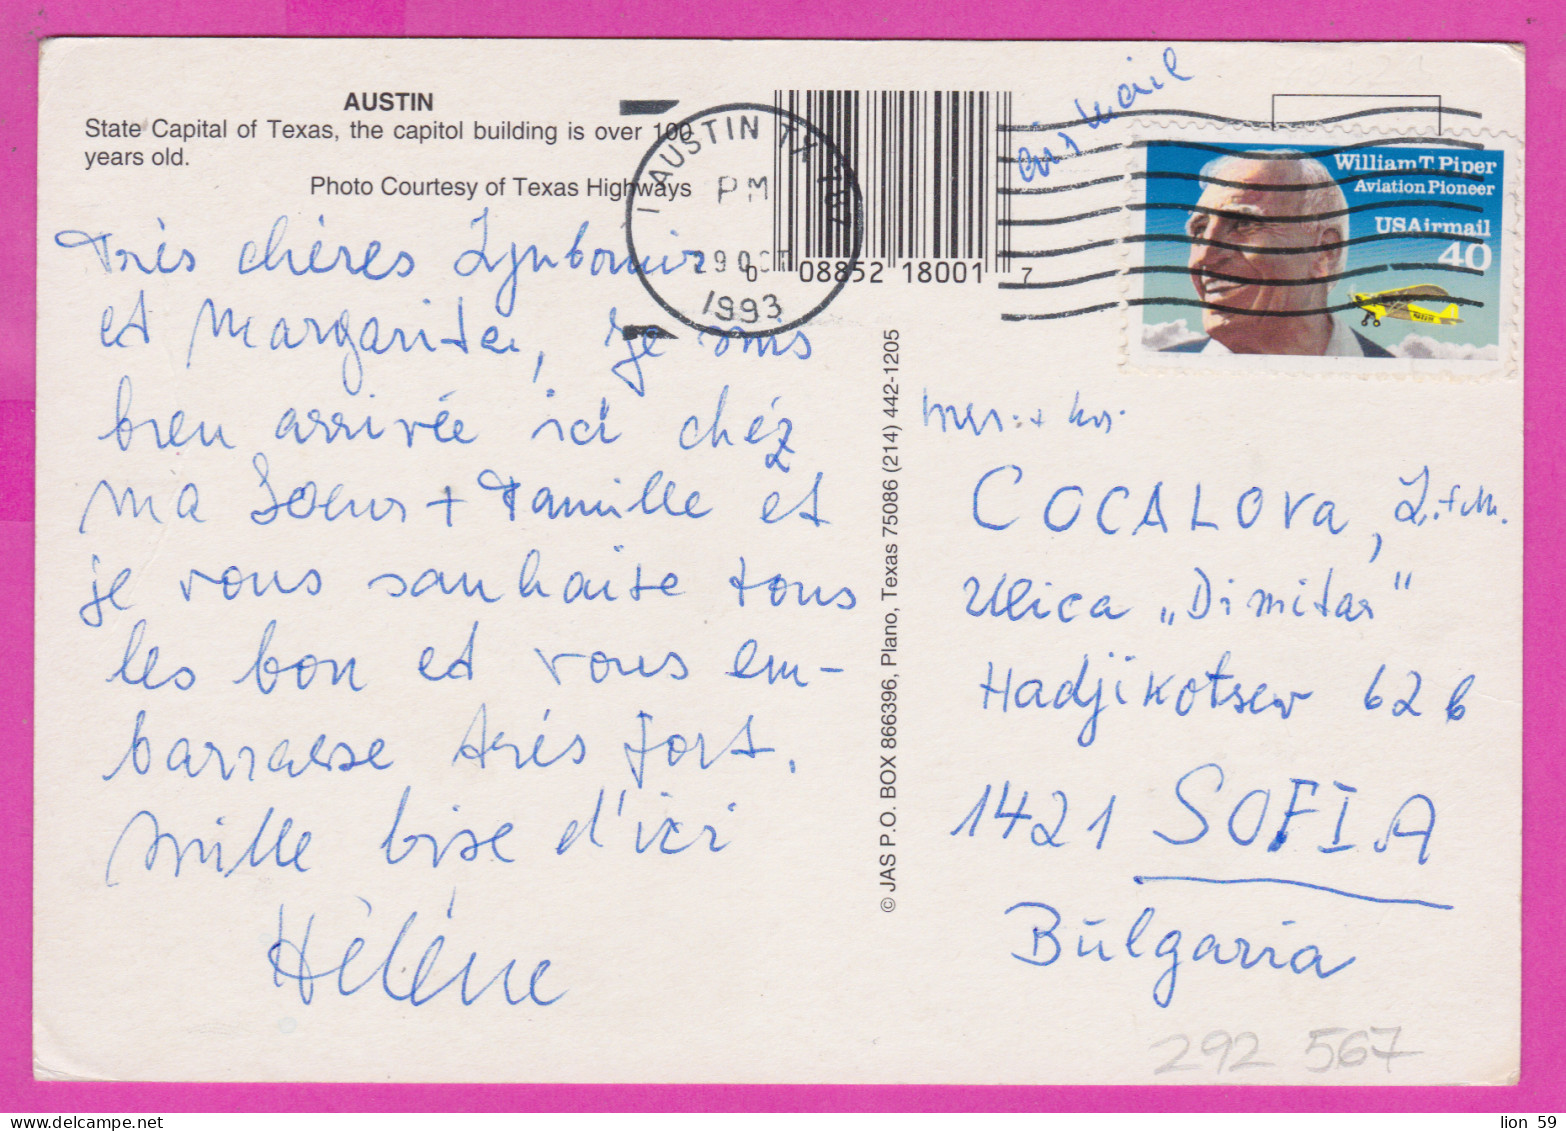 AUSTIN
State Capital of Texas, the capitol building is over 100
years old.
Photo Courtesy of Texas Highways
AUSTIN TX
PM
29 OCT
1993
0 08852 18001 7
air mail
William T. Piper
Aviation Pioneer
USAirmail
40
Très chères Lyubomir
et Margarita, je suis
bien arrivée ici chéz
ma Soeur + Famille et
je vous sauhaite tous
les bon et vous em-
barrasse trés fort.
Mille bise d'ici
Hélène
© JAS P.O. BOX 866396, Plano, Texas 75086 (214) 442-1205
COCALOVA, L.+M.
Ulica „Dimitar"
Hadjikotsev 62 b
1421 SOFIA
Bulgaria
292 567
lion 59